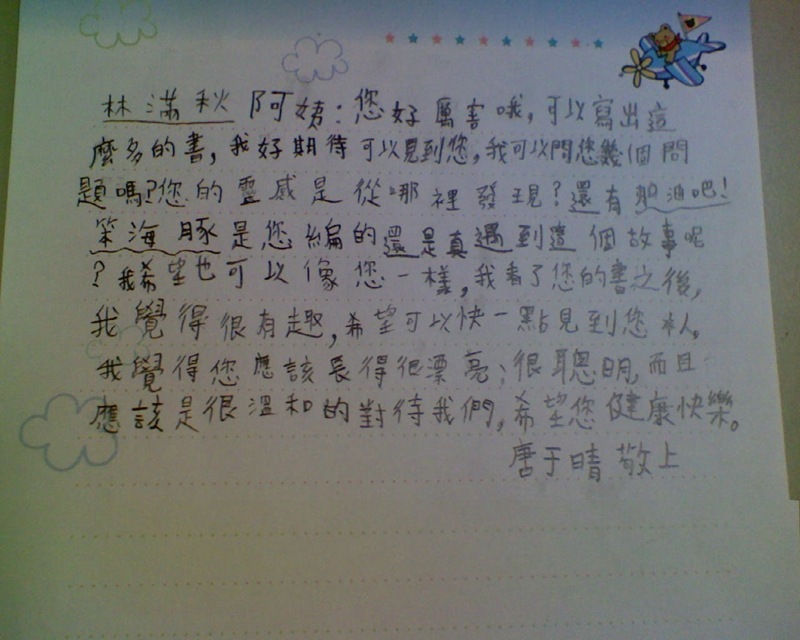 林滿秋阿姨：您好厲害哦，可以寫出這
麼多的書，我好期待可以見到您，我可以問您幾個問
題嗎？您的靈感是從哪裡發現？還有加油吧！
笨海豚是您編的還是真遇到這個故事呢
？我希望也可以像您一樣，我看了您的書之後，
我覺得很有趣，希望可以快一點見到您本人。
我覺得您應該長得很漂亮；很聰明，而且
應該是很溫和的對待我們，希望您健康快樂。
唐于晴 敬上